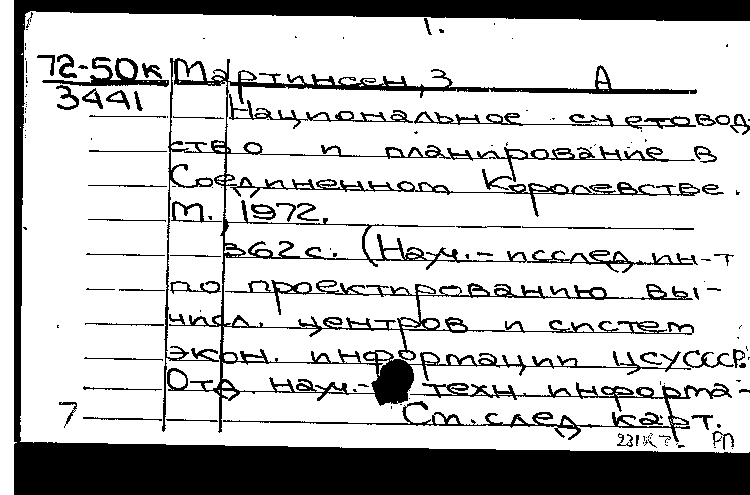 1.
72-50к Мартинсен, З А
3441 Национальное счетовод-
ство и планирование в
Соединенном Королевстве.
М., 1972.
362 с. (Науч.-исслед. ин-т
по проектированию вы-
числ. центров и систем
экон. информации ЦСУ СССР.
Отд науч.- техн. информа-
7 См. след. карт.
РП